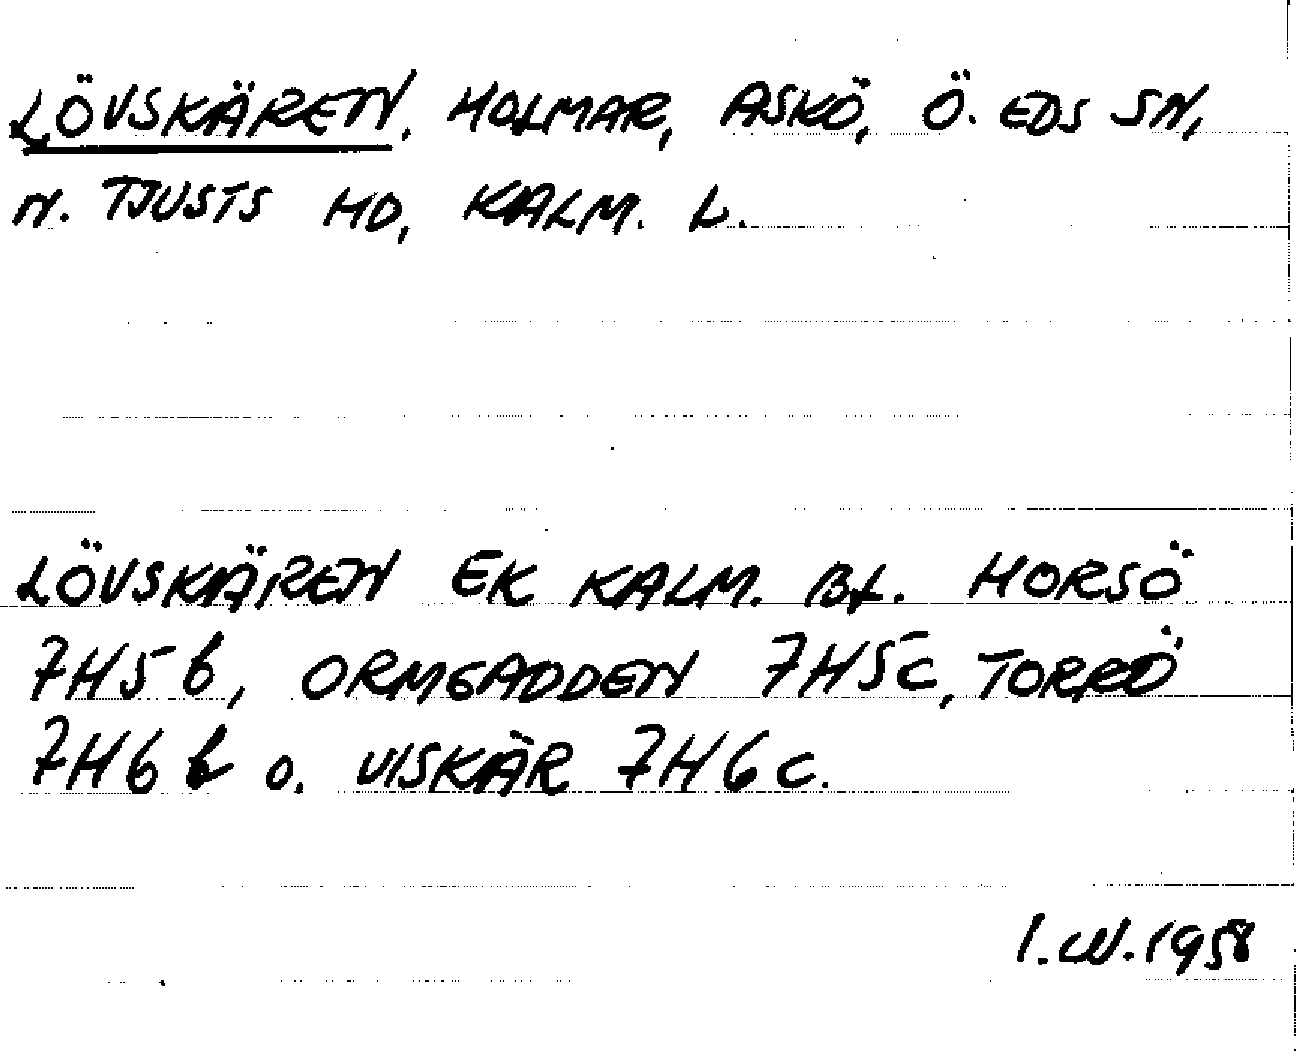 LÖVSKÄREN, HOLMAR, ASKÖ, Ö. EDS SN,
N. TJUSTS HD, KALM. L.
LÖVSKÄREN EK KALM. BL. HORSÖ
7H5b, ORMGADDEN 7H5c, TORRÖ
7H6b o. VISKÄR 7H6c.
I.W.1958